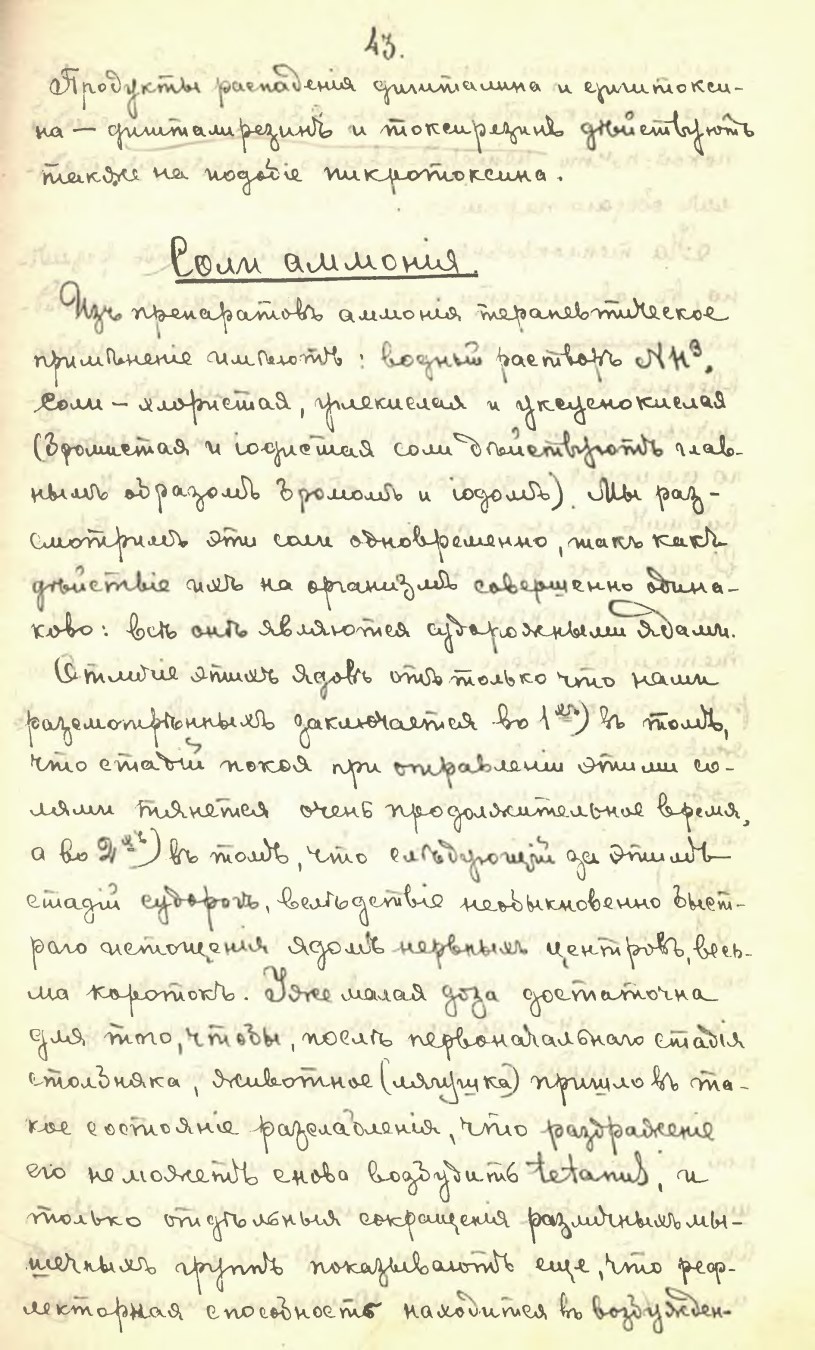 43.
Продукты распаденія дигиталина и дигитокси-
на — дигиталирезинъ и токсирезинъ дѣйствуютъ
также на подобіе пикротоксина.
Соли аммонія.
Изъ препаратовъ аммонія терапевтическое
примѣненіе имѣютъ: водный растворъ NH³,
соли — хлористая, углекислая и уксуснокислая
(бромистая и іодистая соли дѣйствуютъ глав-
нымъ образомъ бромомъ и іодомъ). Мы раз-
смотримъ эти соли одновременно, такъ какъ
дѣйствіе ихъ на организмъ совершенно одина-
ково: всѣ онѣ являются судорожными ядами.
Отличіе этихъ ядовъ отъ только что нами
разсмотрѣнныхъ заключается во 1ыхъ) въ томъ,
что стадій покоя при отравленіи этими со-
лями тянется очень продолжительное время,
а во 2хъ) въ томъ, что слѣдующій за этимъ
стадій судорогъ, вслѣдствіе необыкновенно быст-
раго истощенія ядомъ нервныхъ центровъ, весь-
ма коротокъ. Уже малая доза достаточна
для того, чтобы, послѣ первоначальнаго стадія
столбняка, животное (лягушка) пришло въ та-
кое состояніе разслабленія, что раздраженіе
его не можетъ снова возбудить tetanus, и
только отдѣльныя сокращенія различныхъ мы-
шечныхъ группъ показываютъ еще, что реф-
лекторная способность находится въ возбужден-